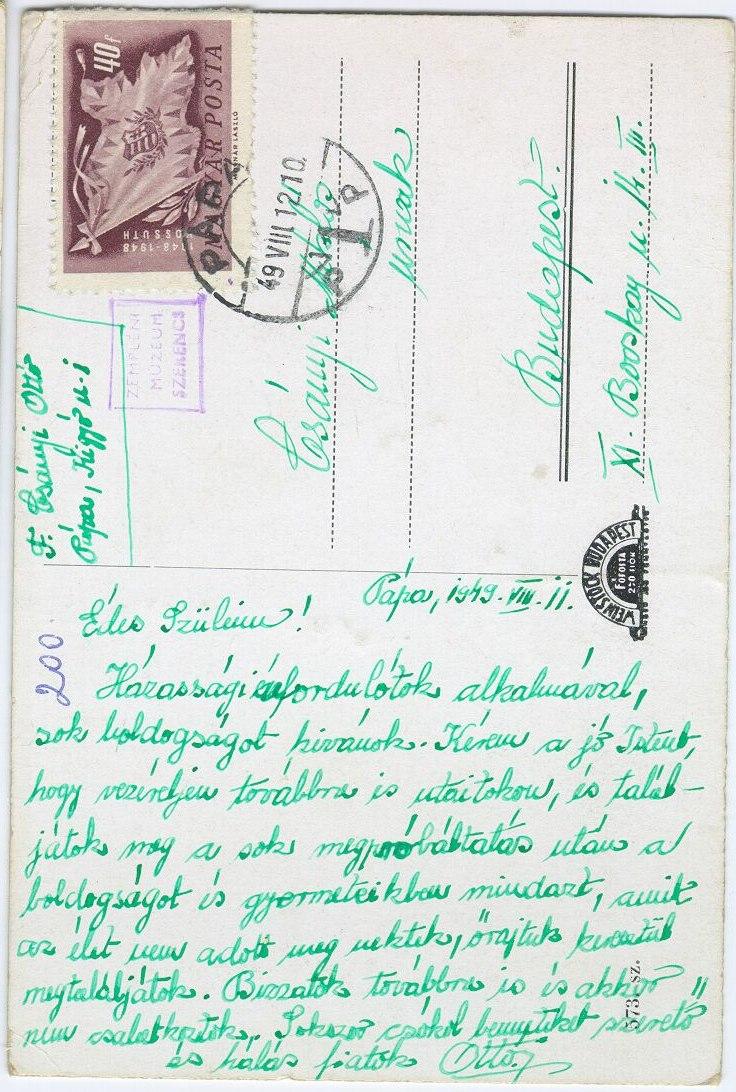 40f
MAGYAR POSTA
1848-1948
KOSSUTH
PÁPA
49 VIII 12 10
1 P
ZEMPLÉNI
MÚZEUM
SZERENCS
F. Csányi Ottó
Pápa, Kigyó u. 1
Csányi
urnak
Budapest.
XI. Bocskay u. 14. III.
WEINSTOCK BUDAPEST
FOFOTO
Pápa, 1949. VIII. 11.
Édes Szüleim!
Házassági évfordulótok alkalmával,
sok boldogságot kivánok. Kérem a jó Istent,
hogy vezéreljen továbbra is utaitokon, és talál-
játok meg a sok megpróbáltatás után a
boldogságot és gyermekeikben mindazt, amit
az élet nem adott meg nektek, őrajtuk keresztül
megtaláljátok. Bizzatok továbbra is és akkor
nem csalatkoztok. Sokszor csókol benneteket szerető
és hálás fiatok Ottó
200
573. sz.